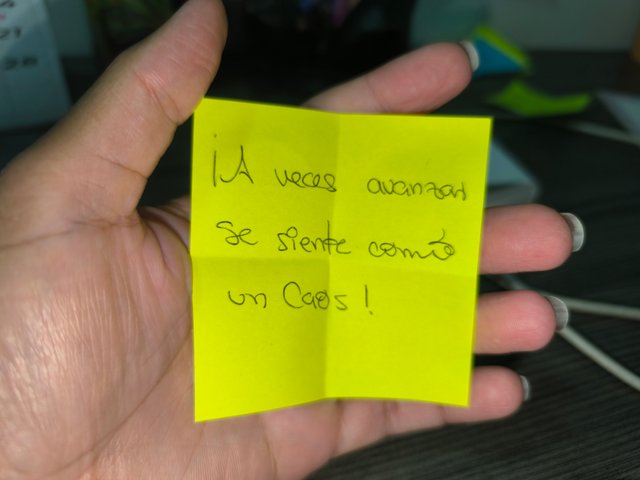 ¡A veces avanzar
se siente como
un Caos!
21
28